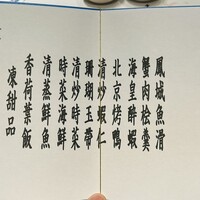 鳳城魚滑
蟹肉桧羹
海皇醉蝦
北京烤鴨
清炒蝦仁
珊瑚玉帶
清炒時菜
時菜海鮮
清蒸鮮魚
香荷葉飯
凍甜品